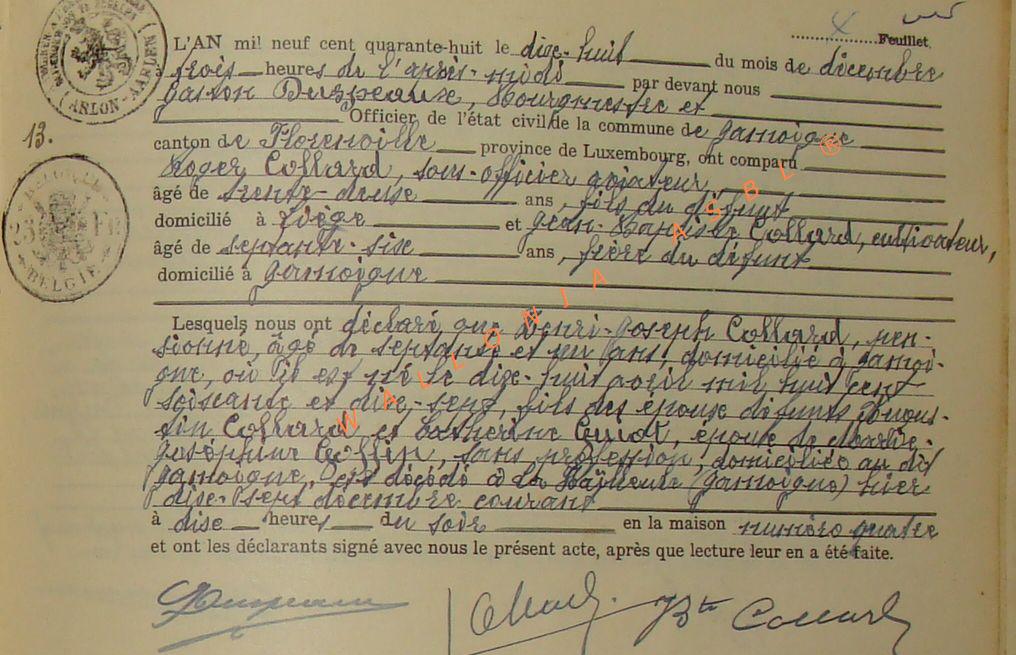 Feuillet.
L'AN mil neuf cent quarante-huit le dix-huit du mois de décembre
trois heures de l'après-midi par devant nous
Gaston Duspeaux, Bourgmestre et
Officier de l'état civil de la commune de Jamoigne
13.
canton de Florenville province de Luxembourg, ont comparu
Roger Collard, sous-officier aviateur,
âgé de trente-deux ans, fils du défunt
domicilié à Liège et Jean-Baptiste Collard, cultivateur,
âgé de septante-six ans, frère du défunt
domicilié à Jamoigne
Lesquels nous ont déclaré que Henri-Joseph Collard, pen-
sionné, âgé de septante et un ans, domicilié à Jamoi-
gne, où il est né le dix-huit avril mil huit cent
soixante et dix-sept, fils des époux défunts
Collard et Catherine Guiot, époux de Marie-
Joséphine Goffin, sans profession, domiciliée au dit
Jamoigne, est décédé à La Hailleule (Jamoigne) hier
dix-sept décembre courant
à dix heures du soir en la maison numéro quatre
et ont les déclarants signé avec nous le présent acte, après que lecture leur en a été faite.
Collard JBte Collard
WALLONIA ASBL ®
ARLON-AARLEN
BELGIE